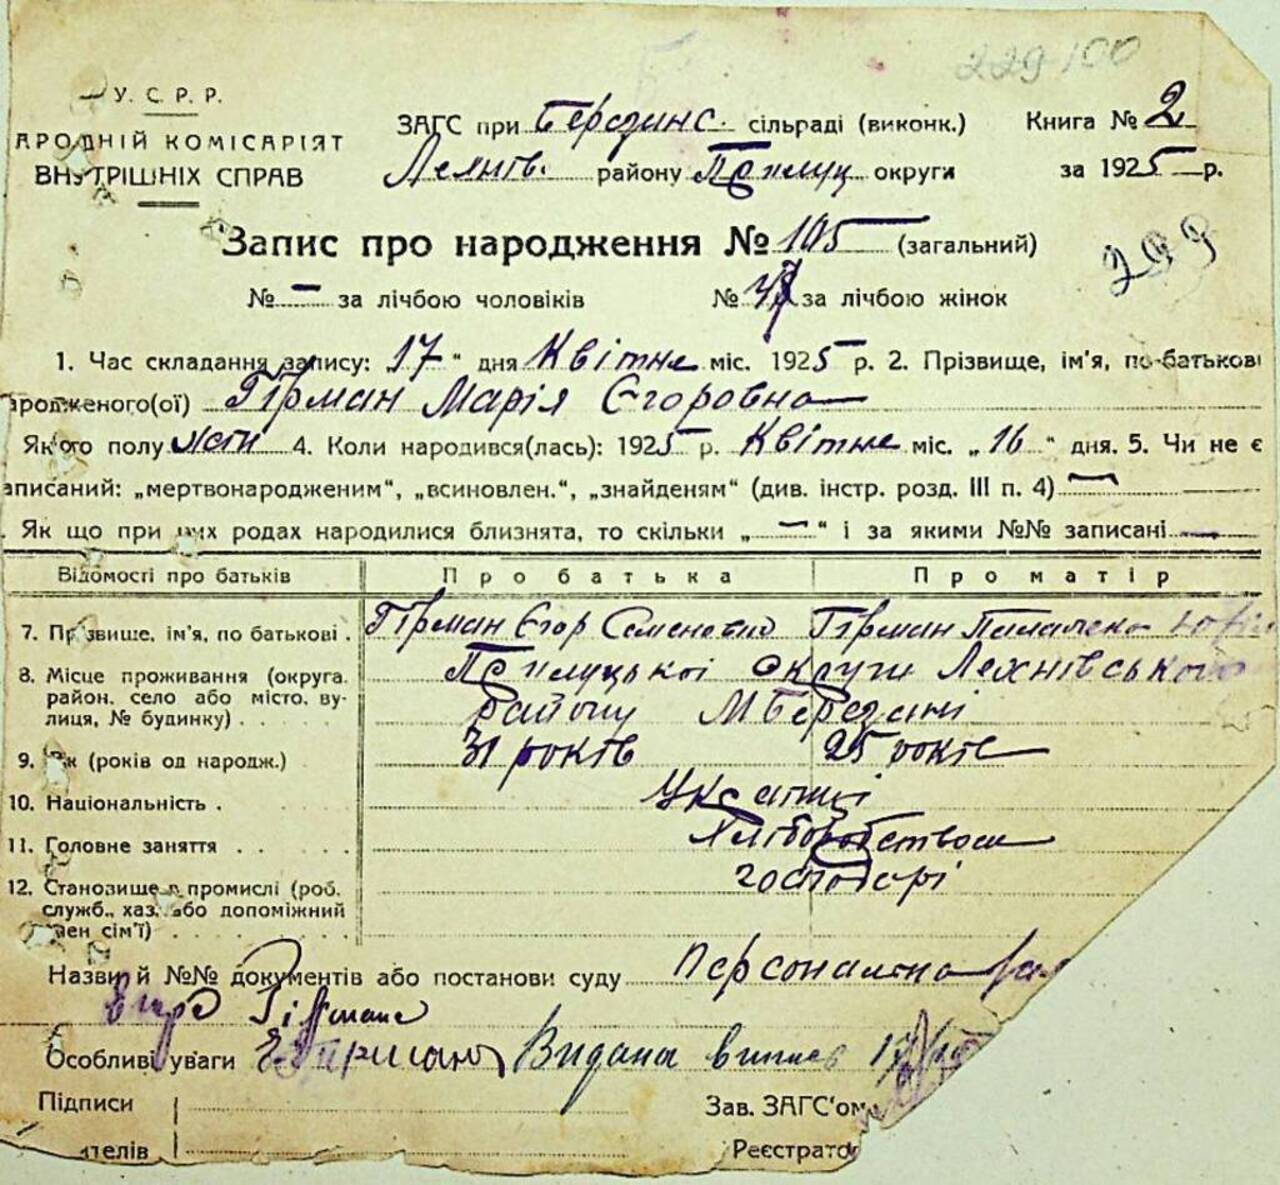 229-100
У. С. Р. Р.
АРОДНІЙ КОМІСАРІЯТ
ВНУТРІШНІХ СПРАВ
ЗАГС при Березанс. сільраді (виконк.) Книга № 2
Лехнів. району Прилуц округи за 1925 р.
Запис про народження № 105 (загальний)
299
№ — за лічбою чоловіків № за лічбою жінок
1. Час складання запису: „17“ дня Квітне міс. 1925 р. 2. Прізвище, ім'я, по-батькові
ародженого(ої) Гірман Марія Єгоровна
Якого полу жін 4. Коли народився(лась): 1925 р. Квітне міс. „16“ дня. 5. Чи не є
аписаний: „мертвонародженим“, „всиновлен.“, „знайденям“ (див. інстр. розд. III п. 4) —
. Як що при цих родах народилися близнята, то скільки „—“ і за якими №№ записані —
Відомості про батьків Про батька Про матір
7. Прізвище, ім'я, по батькові . Гірман Єгор Семенович Гірман Палажка
8. Місце проживання (округа, район, село або місто, вулиця, № будинку) . . . . Прилуцької округи Лехнівського
району М Березані
9. Вік (років од народж.) 31 років 25 років
10. Національність . Українці
11. Головне заняття . . . Хліборобством
12. Становище в промислі (роб. служб., хаз. або допоміжний член сім'ї) . . . господарі
Назви й №№ документів або постанови суду Персональна
Гірмана
Особливі уваги Видана
Підписи Зав. ЗАГС'ом
ителів Реєстратор